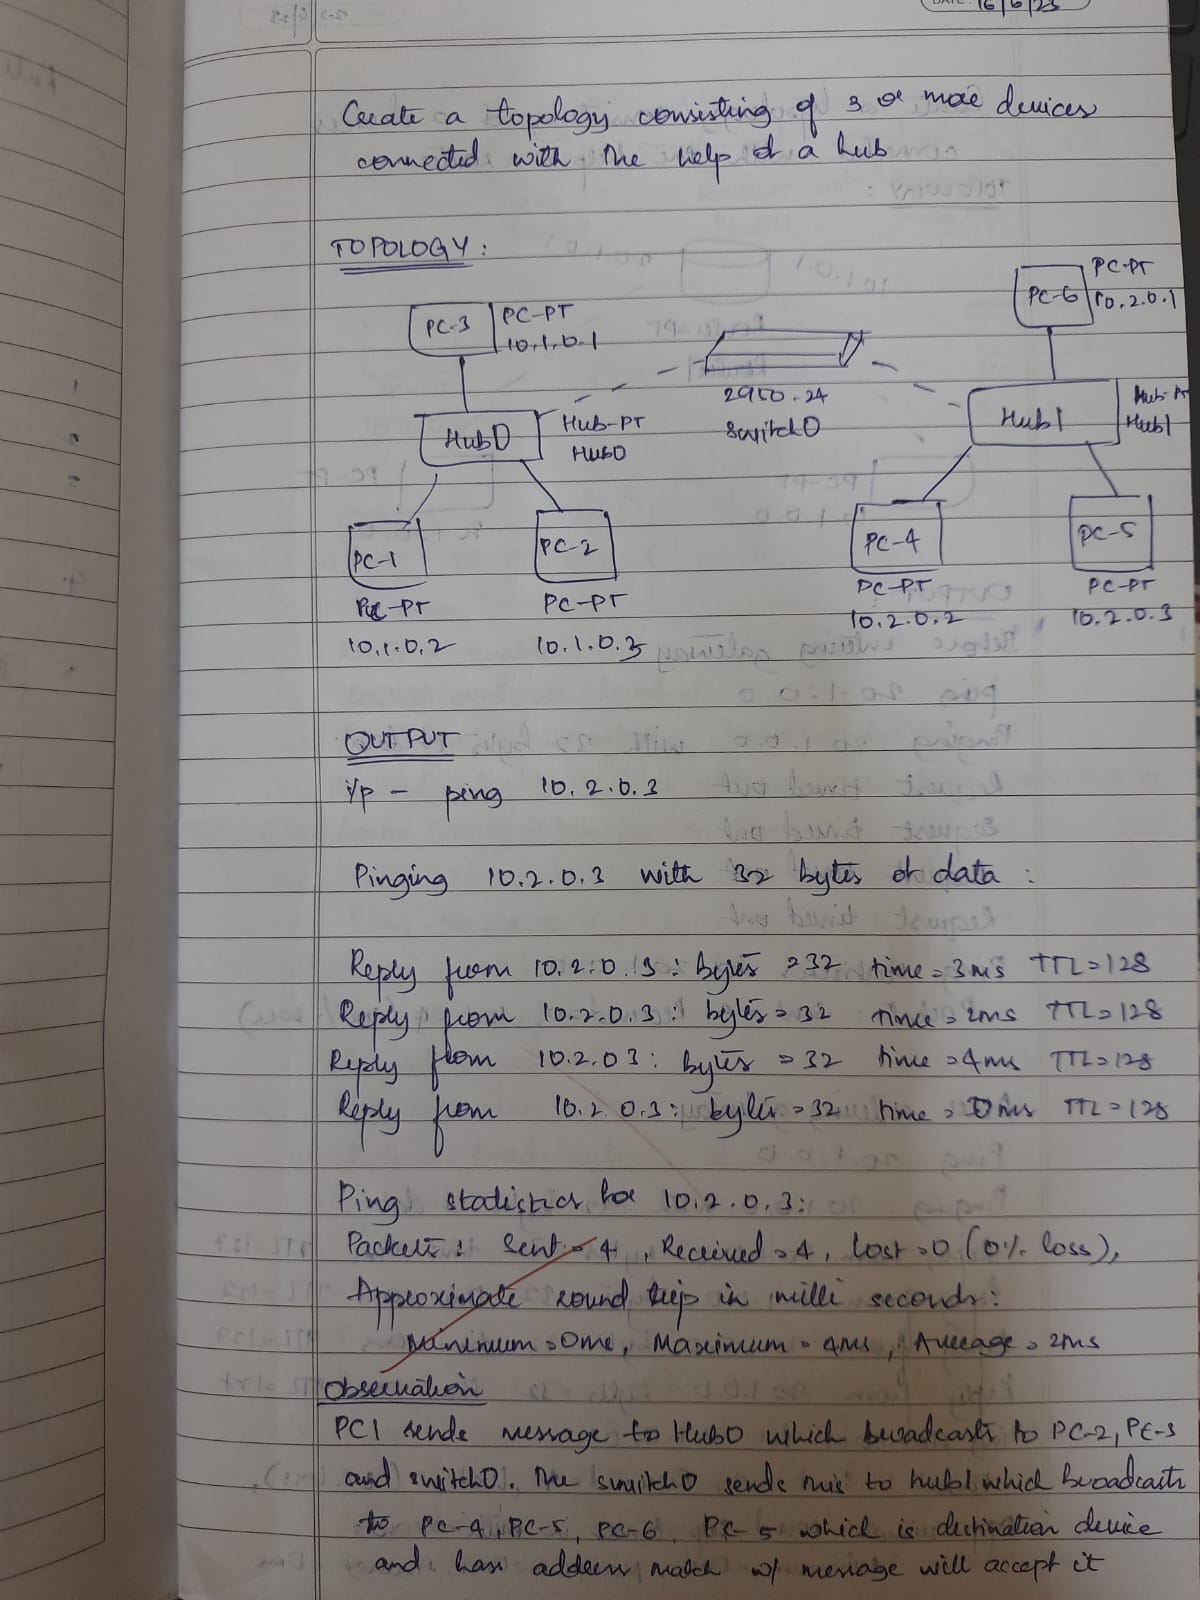 DATE: 16/6/23
Create a topology consisting of 3 or more devices
connected with the help of a hub
TOPOLOGY:
PC-3
PC-PT
10.1.0.1
PC-6
PC-PT
10.2.0.1
2950-24
Switch0
Hub0
Hub-PT
Hub0
Hub1
Hub-PT
Hub1
PC-1
PC-PT
10.1.0.2
PC-2
PC-PT
10.1.0.3
PC-4
PC-PT
10.2.0.2
PC-5
PC-PT
10.2.0.3
OUTPUT
i/p - ping 10.2.0.3
Pinging 10.2.0.3 with 32 bytes of data:
Reply from 10.2.0.3: bytes = 32 time = 3ms TTL=128
Reply from 10.2.0.3: bytes = 32 time = 2ms TTL=128
Reply from 10.2.03: bytes = 32 time = 4ms TTL=128
Reply from 10.2.0.3: bytes = 32 time = 0ms TTL=128
Ping statistics for 10.2.0.3:
Packets: Sent = 4, Received = 4, Lost = 0 (0% loss),
Approximate round trip in milli seconds:
Minimum = 0ms, Maximum = 4ms, Average = 2ms
Observation
PC1 sends message to Hub0 which broadcasts to PC-2, PC-3
and switch0. The switch0 sends this to hub1 which broadcasts
to PC-4, PC-5, PC-6. PC-5 which is destination device
and has address match w/ message will accept it